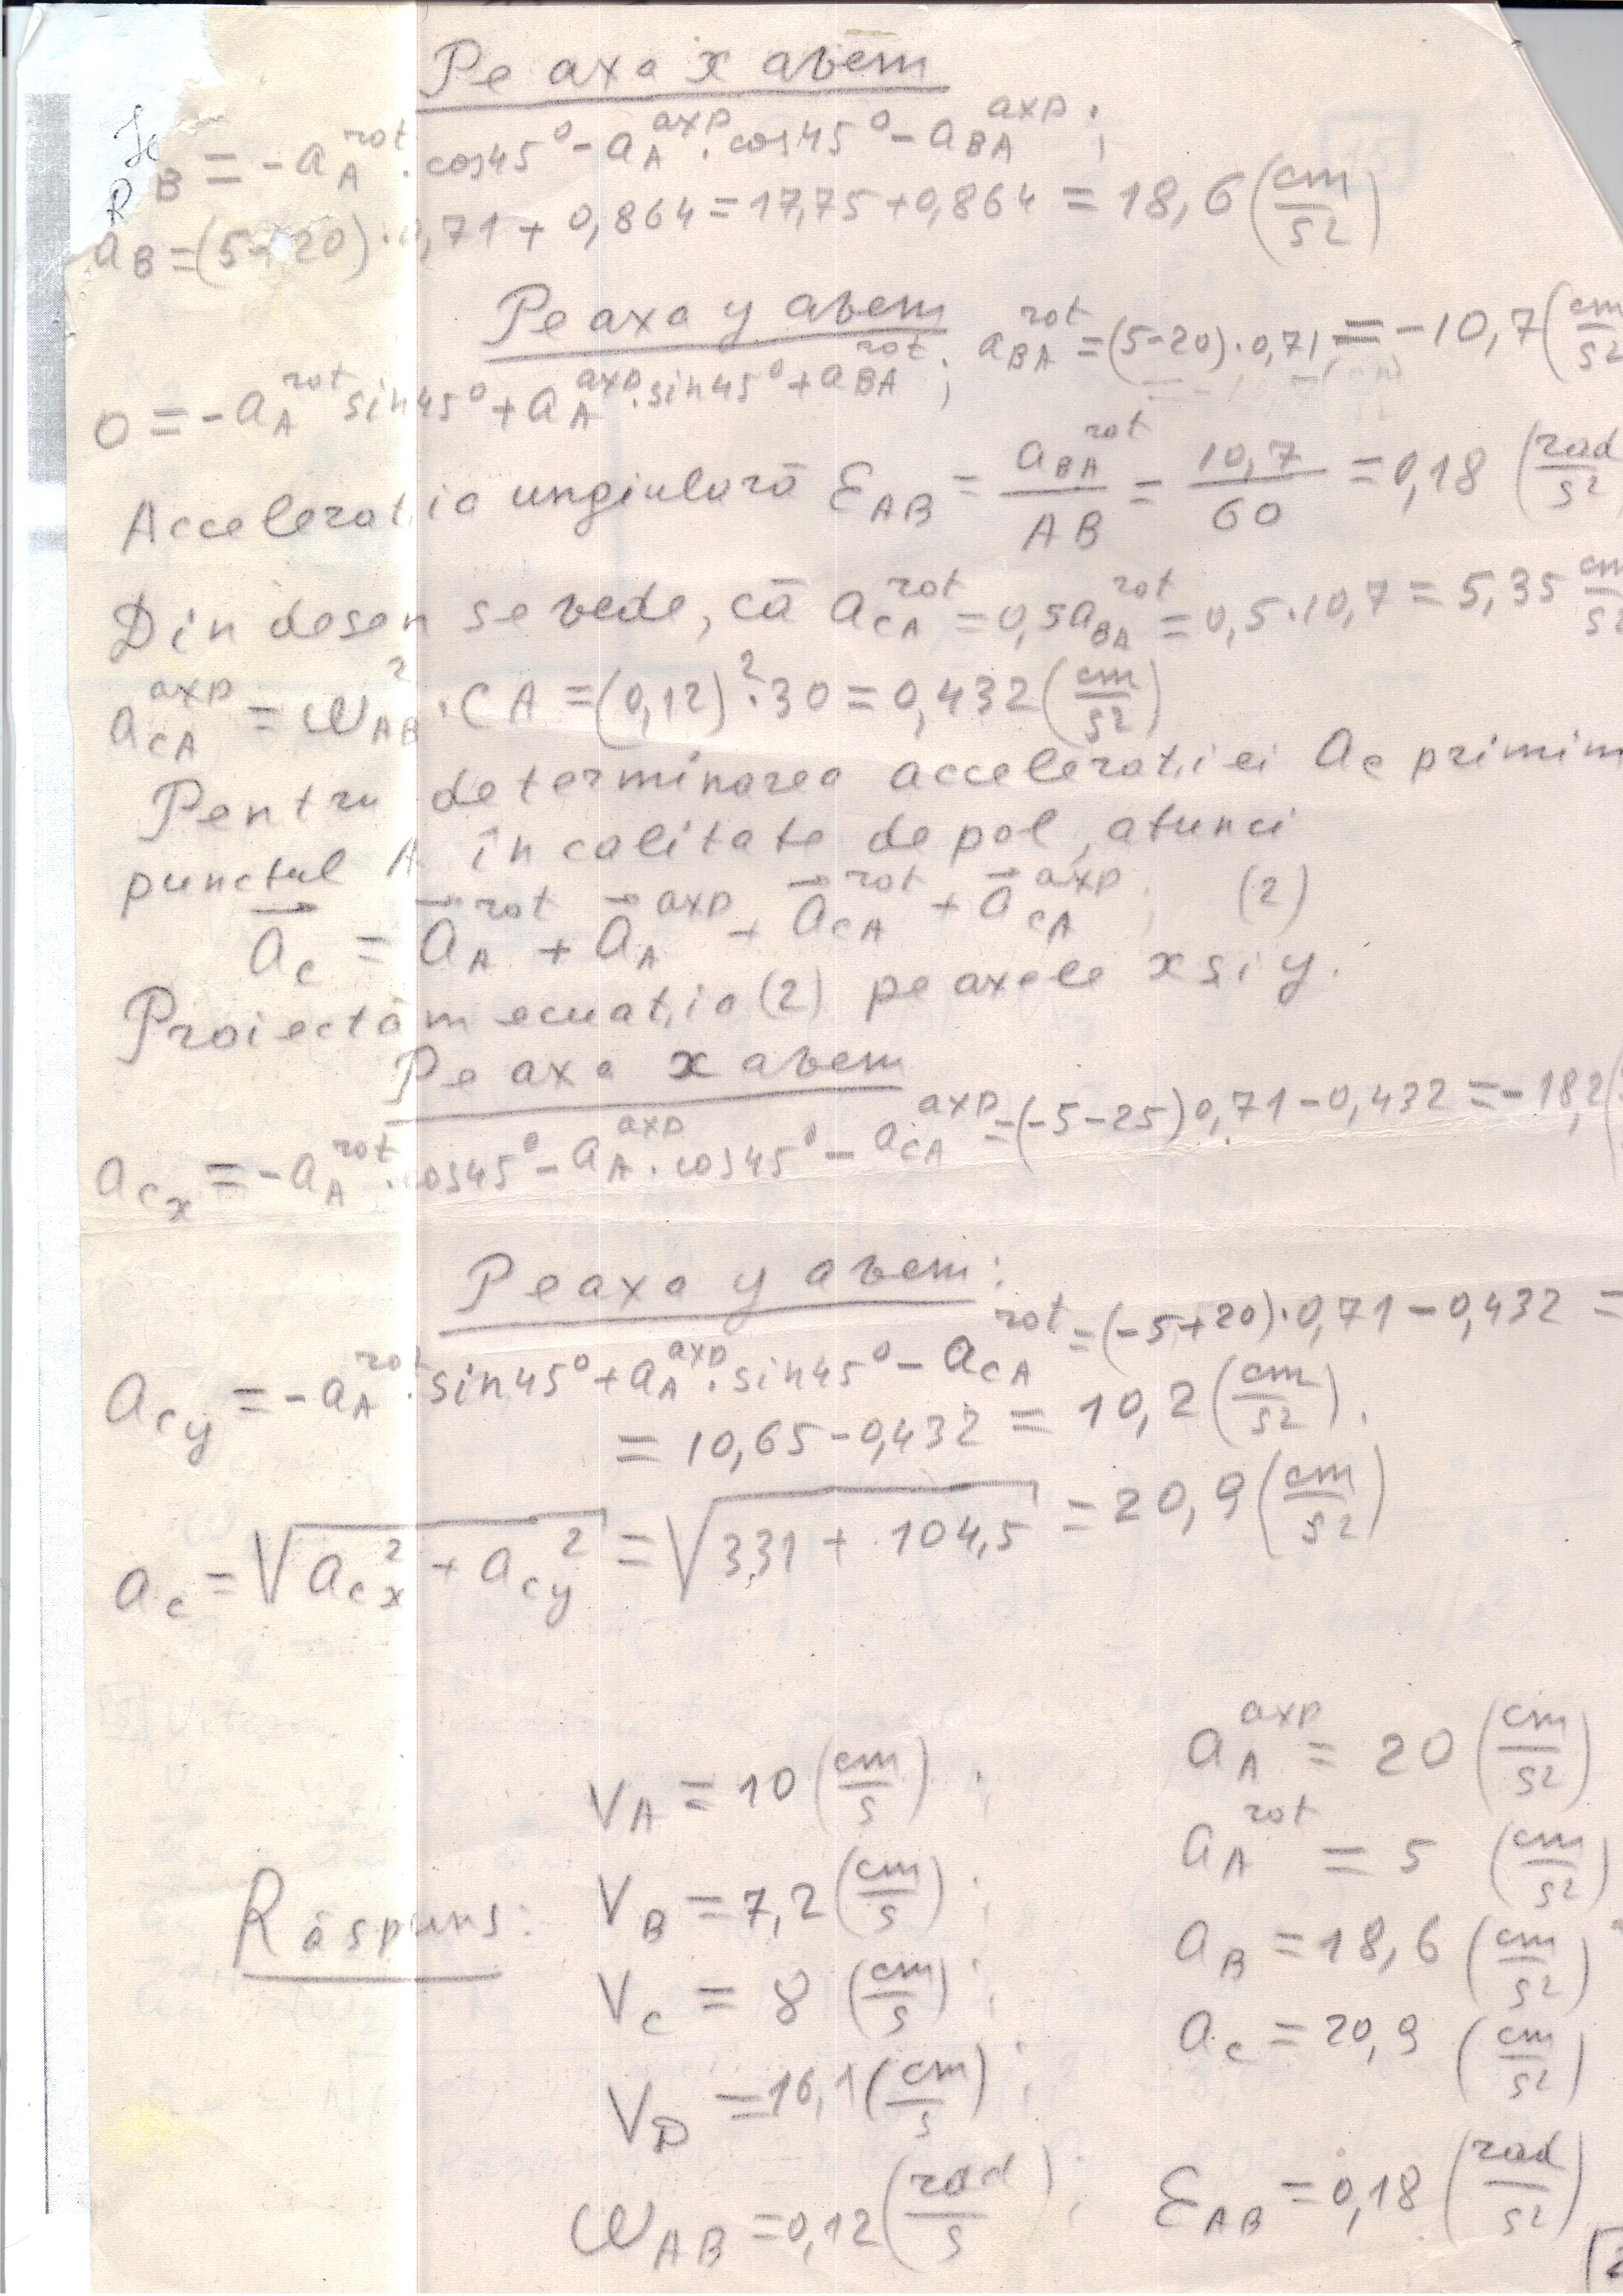 Pe axa x avem
B = -a_A^rot · cos45° - a_A^axp · cos45° - a_BA^axp ;
a_B = (5+20) · 0,71 + 0,864 = 17,75 + 0,864 = 18,6 (cm/s²)
Pe axa y avem
0 = -a_A^rot sin45° + a_A^axp · sin45° + a_BA^rot ; a_BA^rot = (5-20) · 0,71 = -10,7 (cm/s²
Accelerația unghiulară ε_AB = a_BA^rot / AB = 10,7 / 60 = 0,18 (rad/s²
Din desen se vede, că a_CA^rot = 0,5 a_BA^rot = 0,5 · 10,7 = 5,35 cm/s²
a_CA^axp = ω_AB² · CA = (0,12)² · 30 = 0,432 (cm/s²)
Pentru determinarea accelerației a_c primim
punctul A în calitate de pol, atunci
a⃗_c = a⃗_A^rot + a⃗_A^axp + a⃗_CA^rot + a⃗_CA^axp ; (2)
Proiectăm ecuația (2) pe axele x si y.
Pe axa x avem
a_cx = -a_A^rot · cos45° - a_A^axp · cos45° - a_CA^axp = (-5-25) 0,71 - 0,432 = -18,2 (
Pe axa y avem:
a_cy = -a_A^rot · sin45° + a_A^axp · sin45° - a_CA^rot = (-5+20) · 0,71 - 0,432 =
= 10,65 - 0,432 = 10,2 (cm/s²).
a_c = √(a_cx² + a_cy²) = √(331 + 104,5) = 20,9 (cm/s²)
Răspuns:
V_A = 10 (cm/s) ;
V_B = 7,2 (cm/s) ;
V_C = 8 (cm/s) ;
V_D = 16,1 (cm/s) ;
ω_AB = 0,12 (rad/s) ;
a_A^axp = 20 (cm/s²)
a_A^rot = 5 (cm/s²)
a_B = 18,6 (cm/s²)
a_c = 20,9 (cm/s²)
ε_AB = 0,18 (rad/s²)